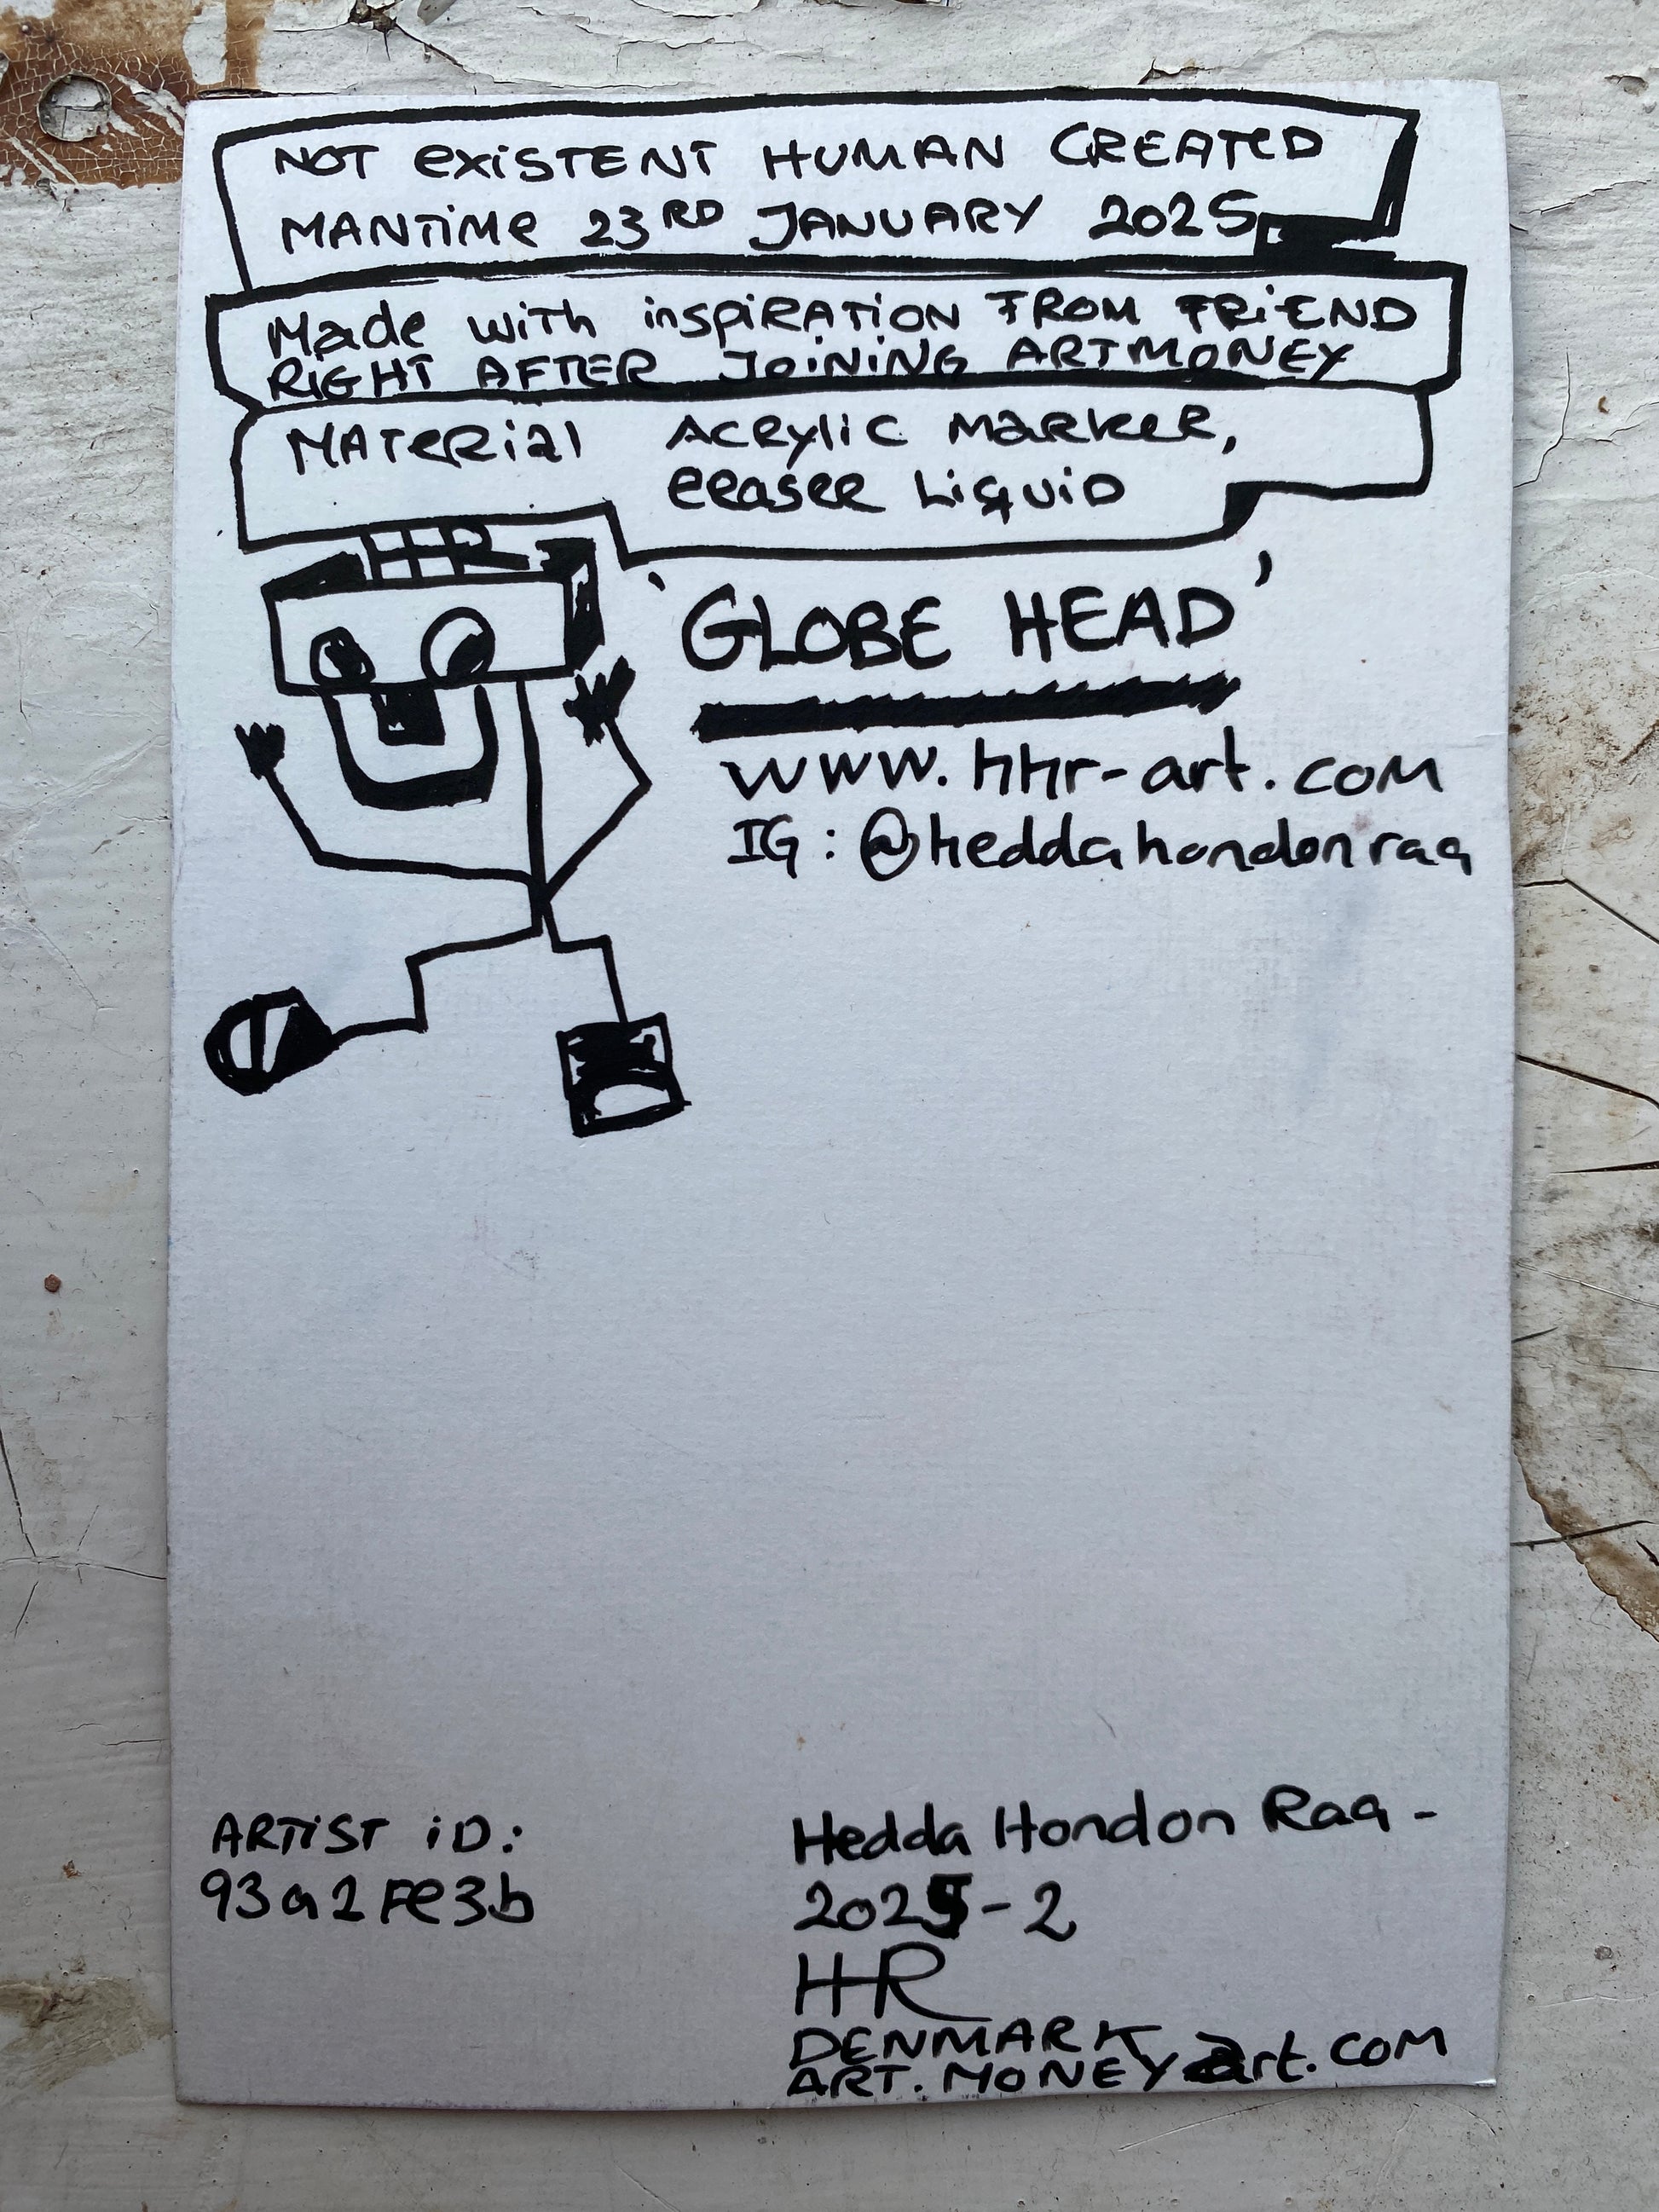 NOT existent HUMAN CREATED
MANTIME 23RD JANUARY 2025
Made with inspiRATION FROM FRIEND
RIGHT AFTER JOINING ARTMONEY
MATERial Acrylic marker,
eraser Liquid
HR
'GLOBE HEAD'
www.hhr-art.com
IG: @heddahondonraa
ARTIST iD:
93a2Fe3b
Hedda Hondon Raa -
2025-2
HR
DENMARK
ART.MONEYart.com